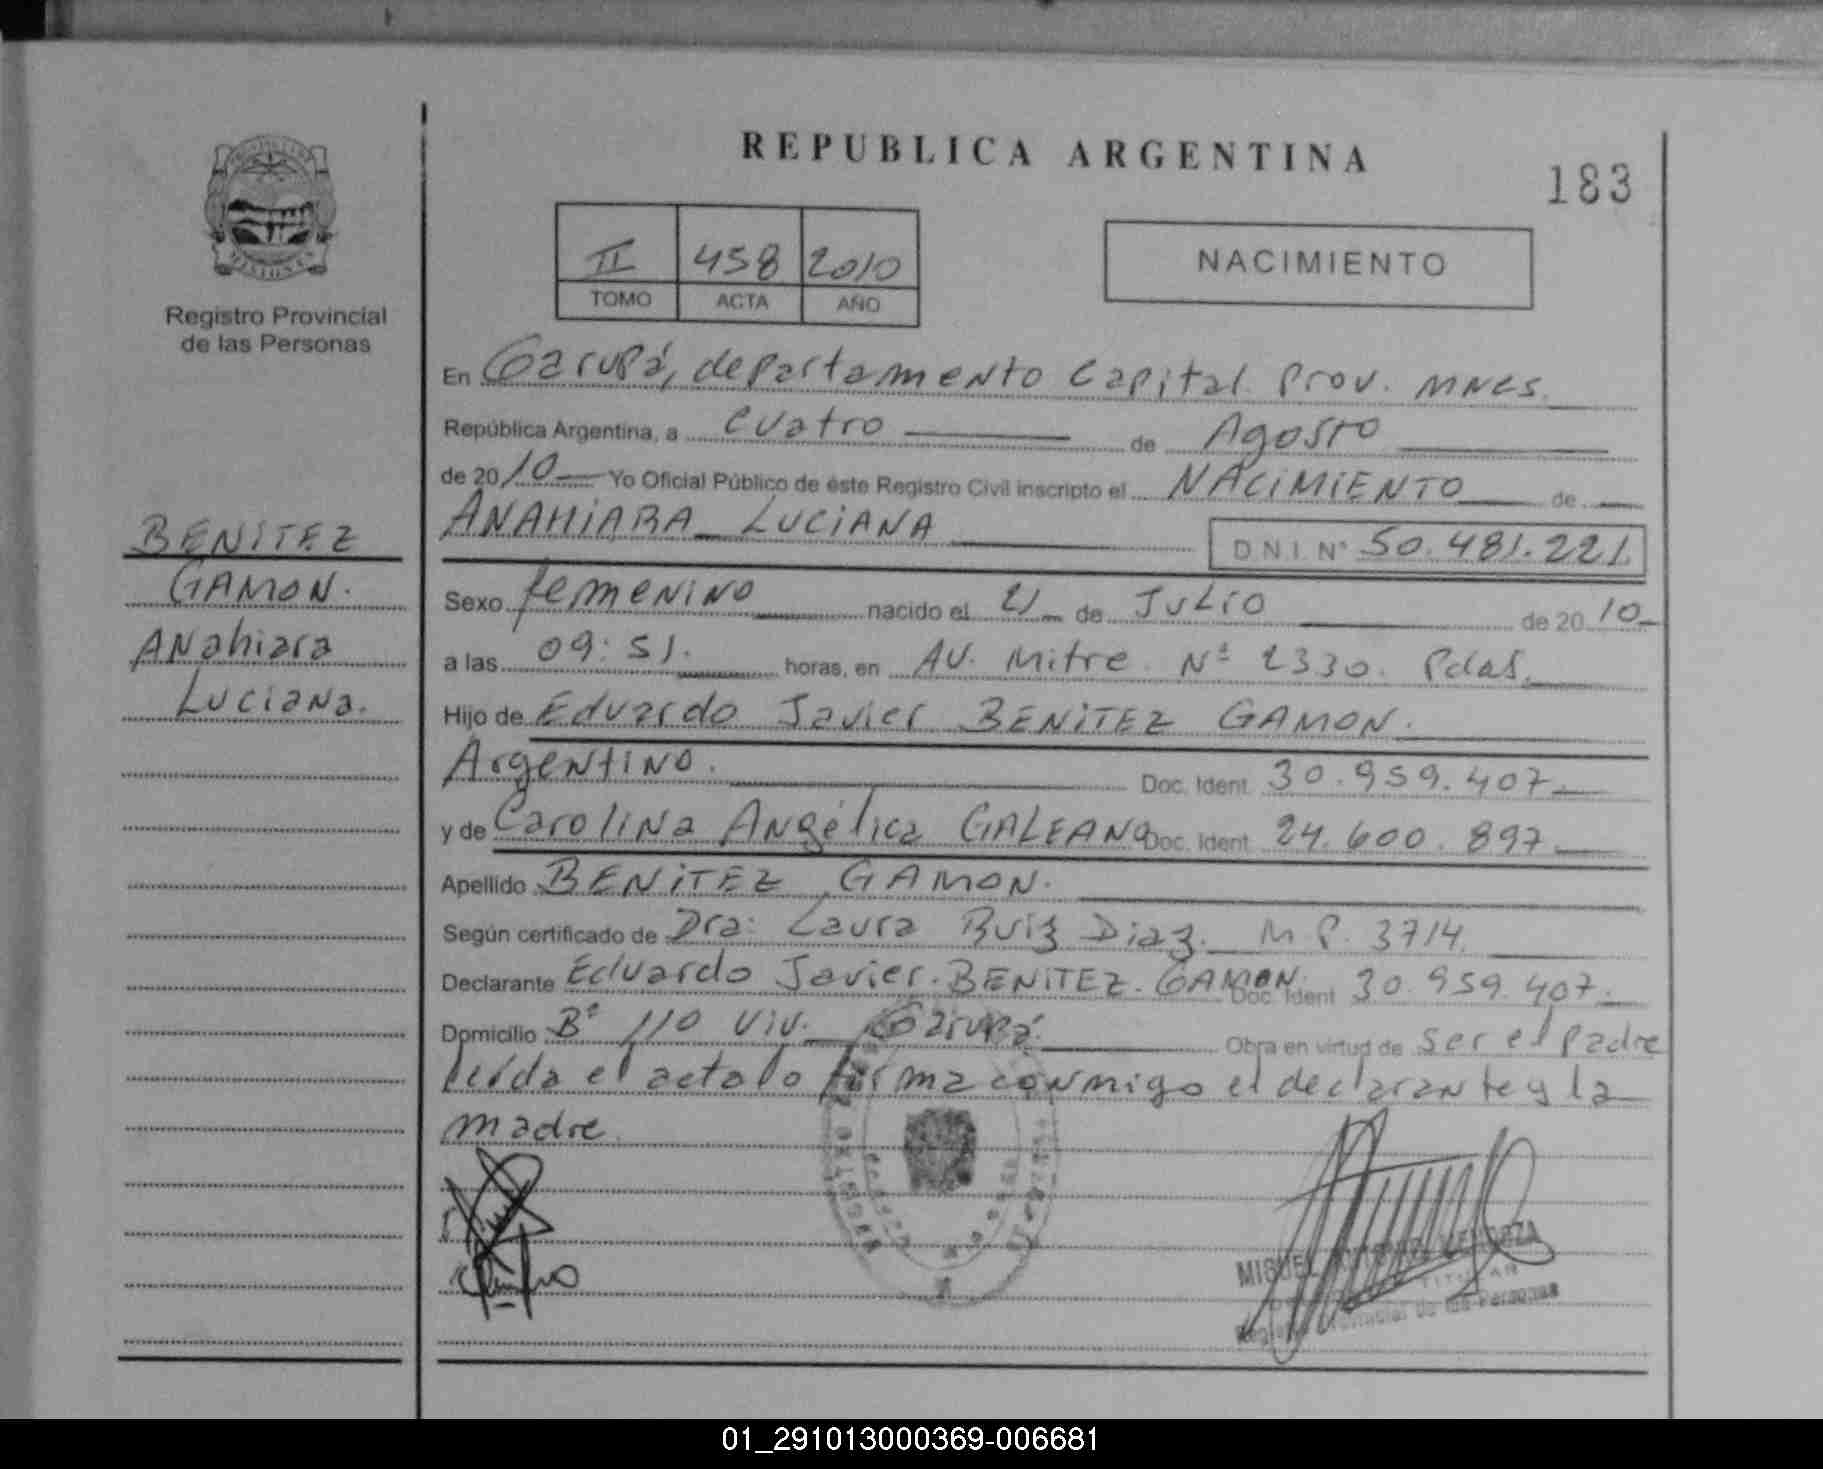 REPUBLICA ARGENTINA
183
Registro Provincial
de las Personas
II 458 2010
TOMO ACTA AÑO
NACIMIENTO
BENITEZ
GAMON.
Anahiara
Luciana.
En Garupá, departamento Capital. Prov. MNES.
República Argentina, a cuatro de Agosto
de 2010 Yo Oficial Público de éste Registro Civil inscripto el NACIMIENTO de
ANAHIARA LUCIANA D.N.I. N° 50.481.221.
Sexo femenino nacido el 21 de Julio de 2010
a las 09:51. horas, en AV. Mitre. Nº 2330. Pdas.
Hijo de Eduardo Javier BENITEZ GAMON.
Argentino. Doc. Ident. 30.959.407
y de Carolina Angélica GALEANO Doc. Ident. 24.600.897
Apellido BENITEZ GAMON.
Según certificado de Dra: Laura Ruiz Diaz. M P. 3714.
Declarante Eduardo Javier. BENITEZ. GAMON. Doc. Ident 30.959.407.
Domicilio Bº 110 Viv. Garupá. Obra en virtud de ser el padre
leída el acta lo firma conmigo el declarante y la
madre
MIGUEL MENDOZA
TITULAR
Registro Provincial de las Personas
01_291013000369-006681